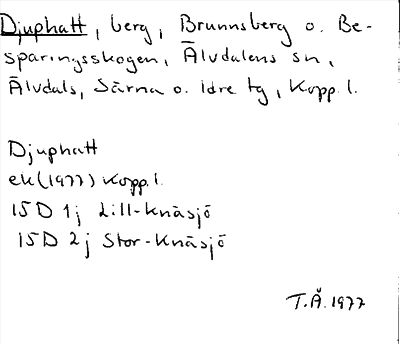 Djuphatt, berg, Brunnsberg o. Be-
sparingsskogen, Älvdalens sn,
Älvdals, Särna o. Idre tg, Kopp. l.
Djuphatt
ek (1977) Kopp. l.
15D 1j Lill-Knäsjö
15D 2j Stor-Knäsjö
T.Å. 1977